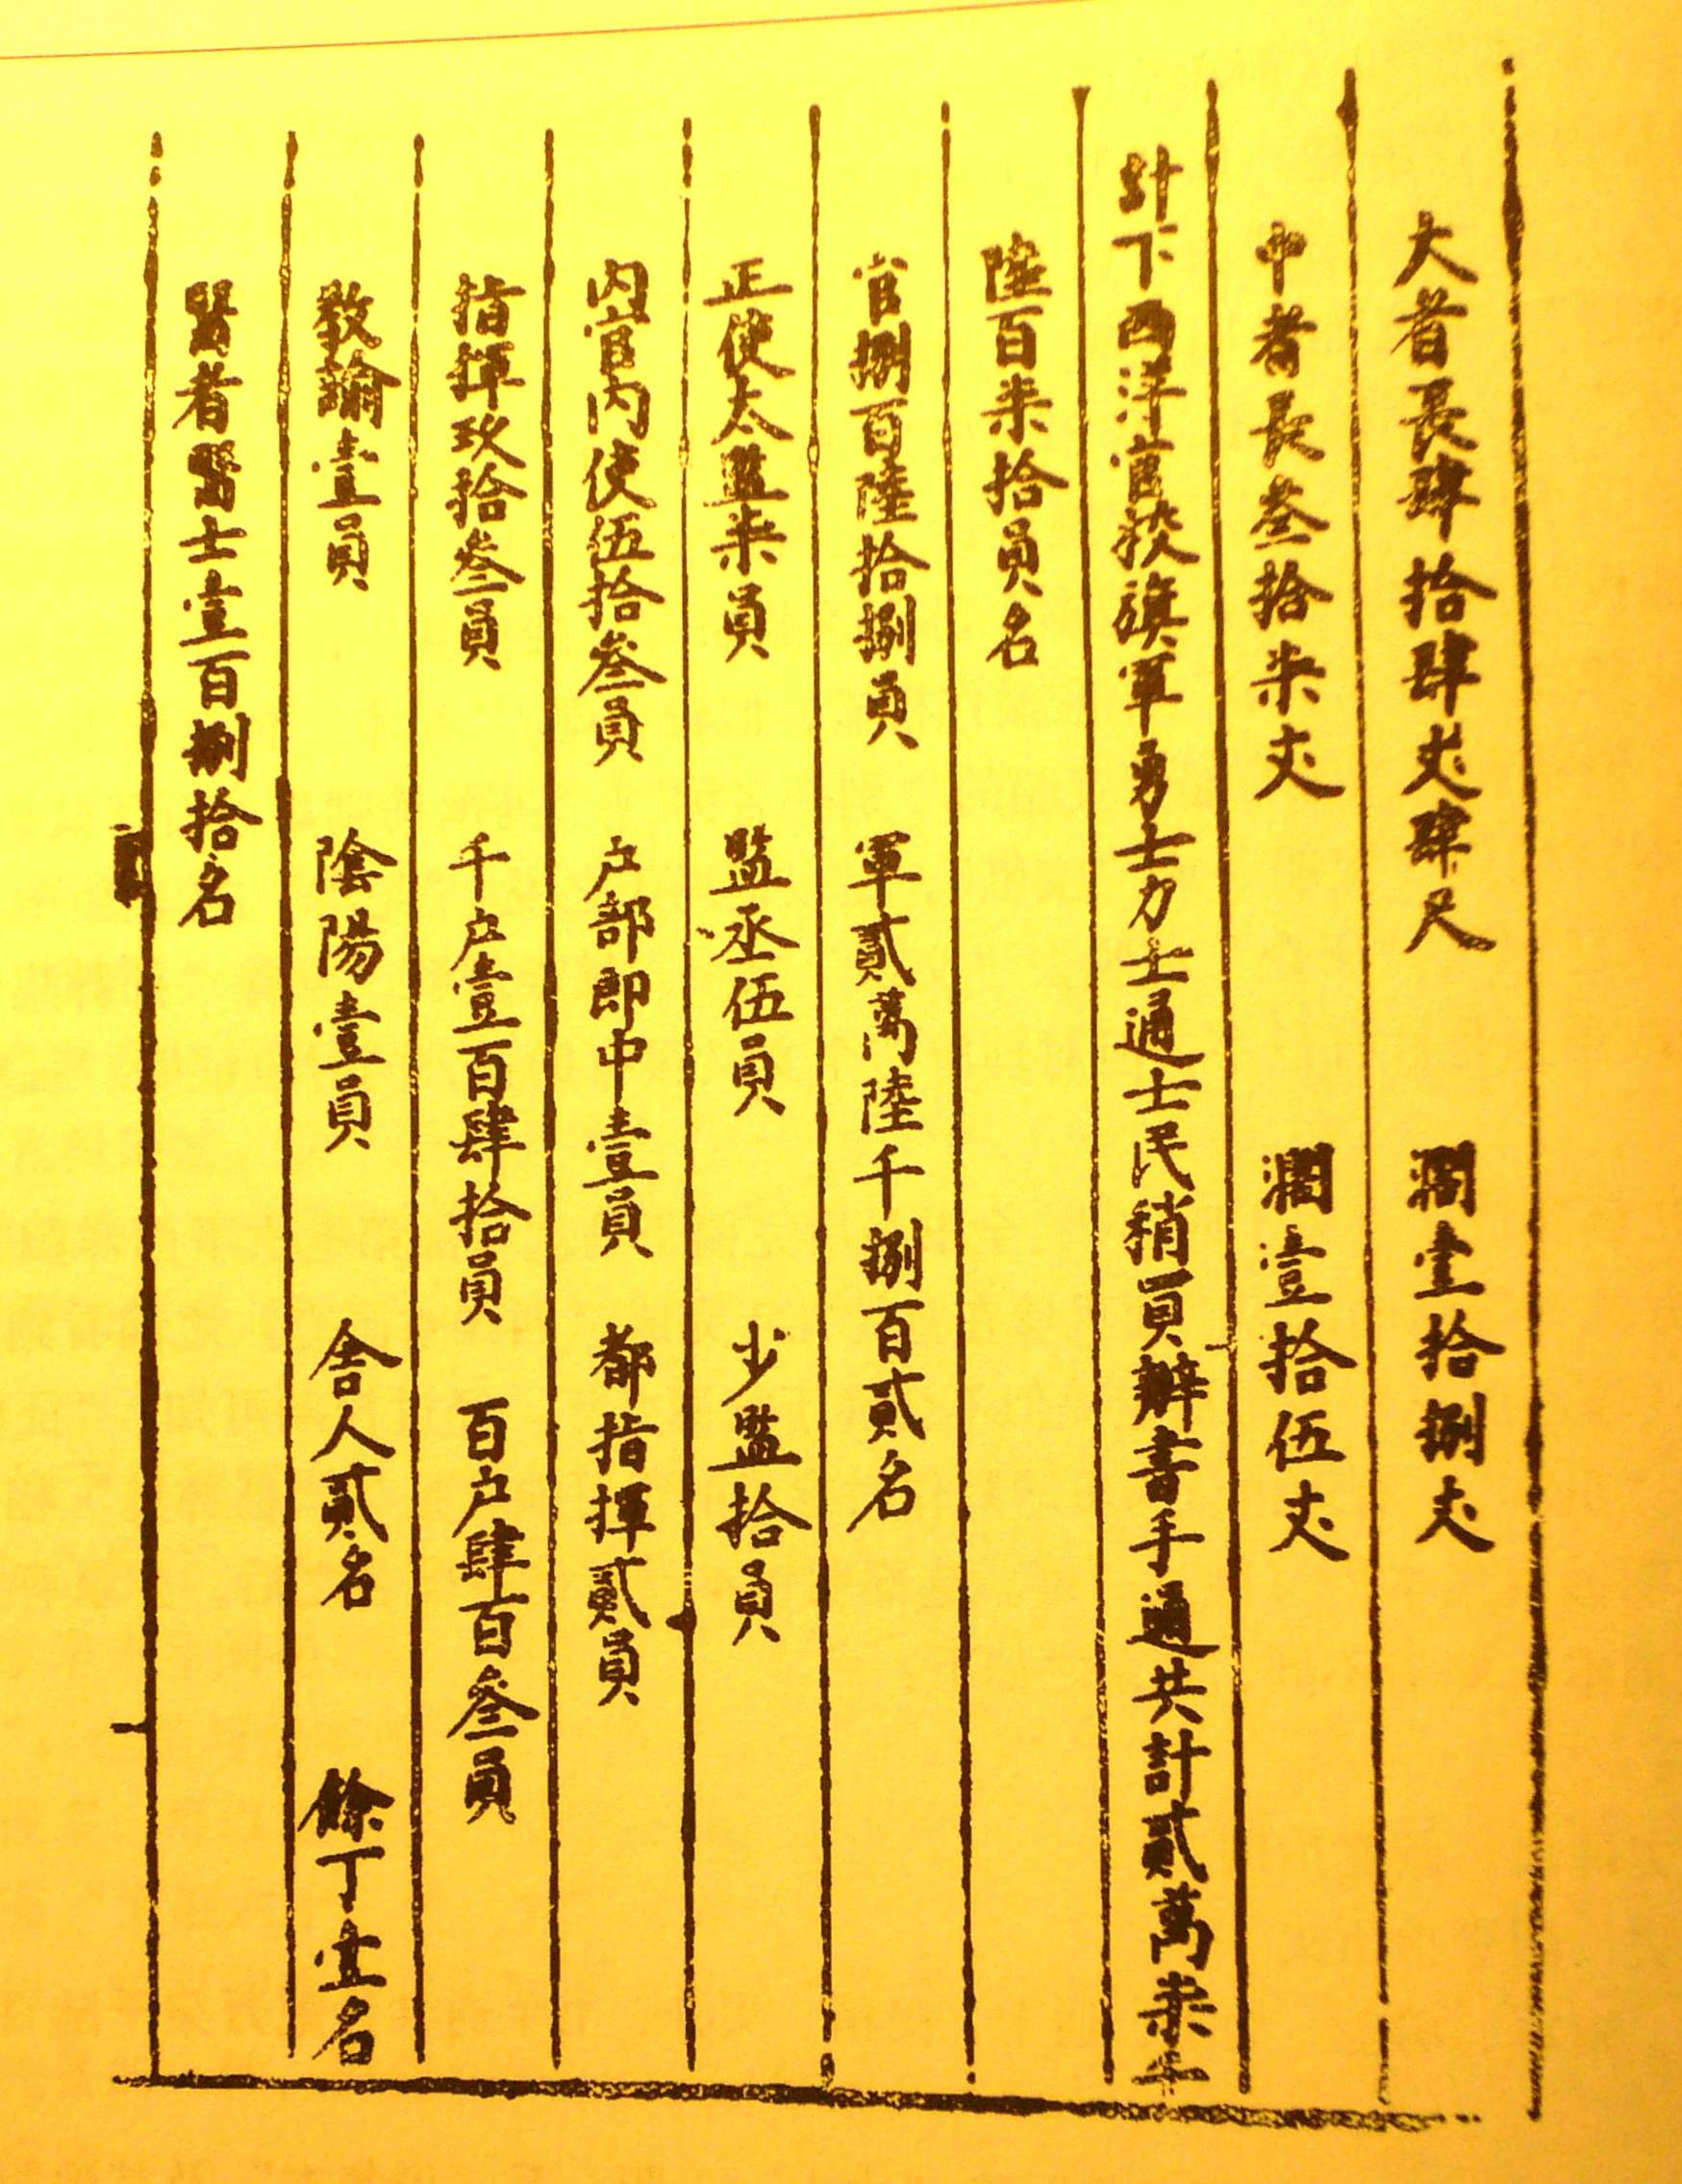 大者長肆拾肆丈肆尺 濶壹拾捌丈
中者長叄拾柒丈 濶壹拾伍丈
計下西洋官校旗軍勇士力士通士民稍買辦書手通共計貳萬柒千
陸百柒拾員名
官捌百陸拾捌員 軍貳萬陸千捌百貳名
正使太監柒員 監丞伍員 少監拾員
内官内使伍拾叄員 户部郎中壹員 都指揮貳員
指揮玖拾叄員 千户壹百肆拾員 百户肆百叄員
教諭壹員 陰陽壹員 舍人貳名 餘丁壹名
醫者醫士壹百捌拾名